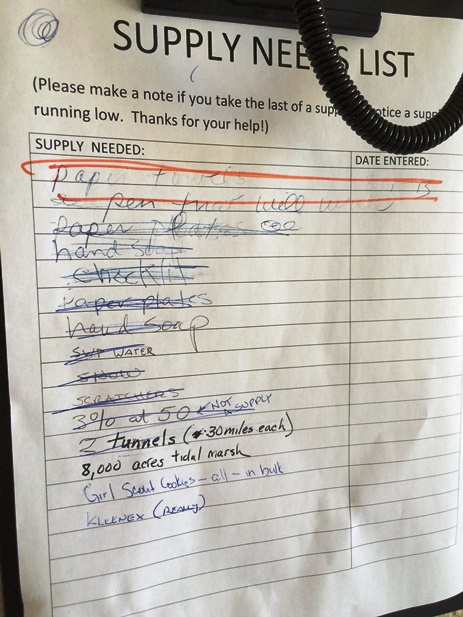 SUPPLY NEEDS LIST
(Please make a note if you take the last of a supply notice a supply
running low. Thanks for your help!)
SUPPLY NEEDED: DATE ENTERED:
paper towels 15
a pen that will
paper plates
hand soap
checklist
paper plates
hand soap
SWP WATER
SNOW
SCRATCHERS
3% at 50 ← NOT SUPPLY
2 tunnels (30 miles each)
8,000 acres tidal marsh
Girl Scout Cookies - all - in bulk
KLEENEX (REALLY)